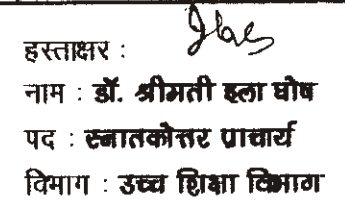 हस्ताक्षर :
नाम : डॉ. श्रीमती इला घोष
पद : स्नातकोत्तर प्राचार्य
विभाग : उच्च शिक्षा विभाग